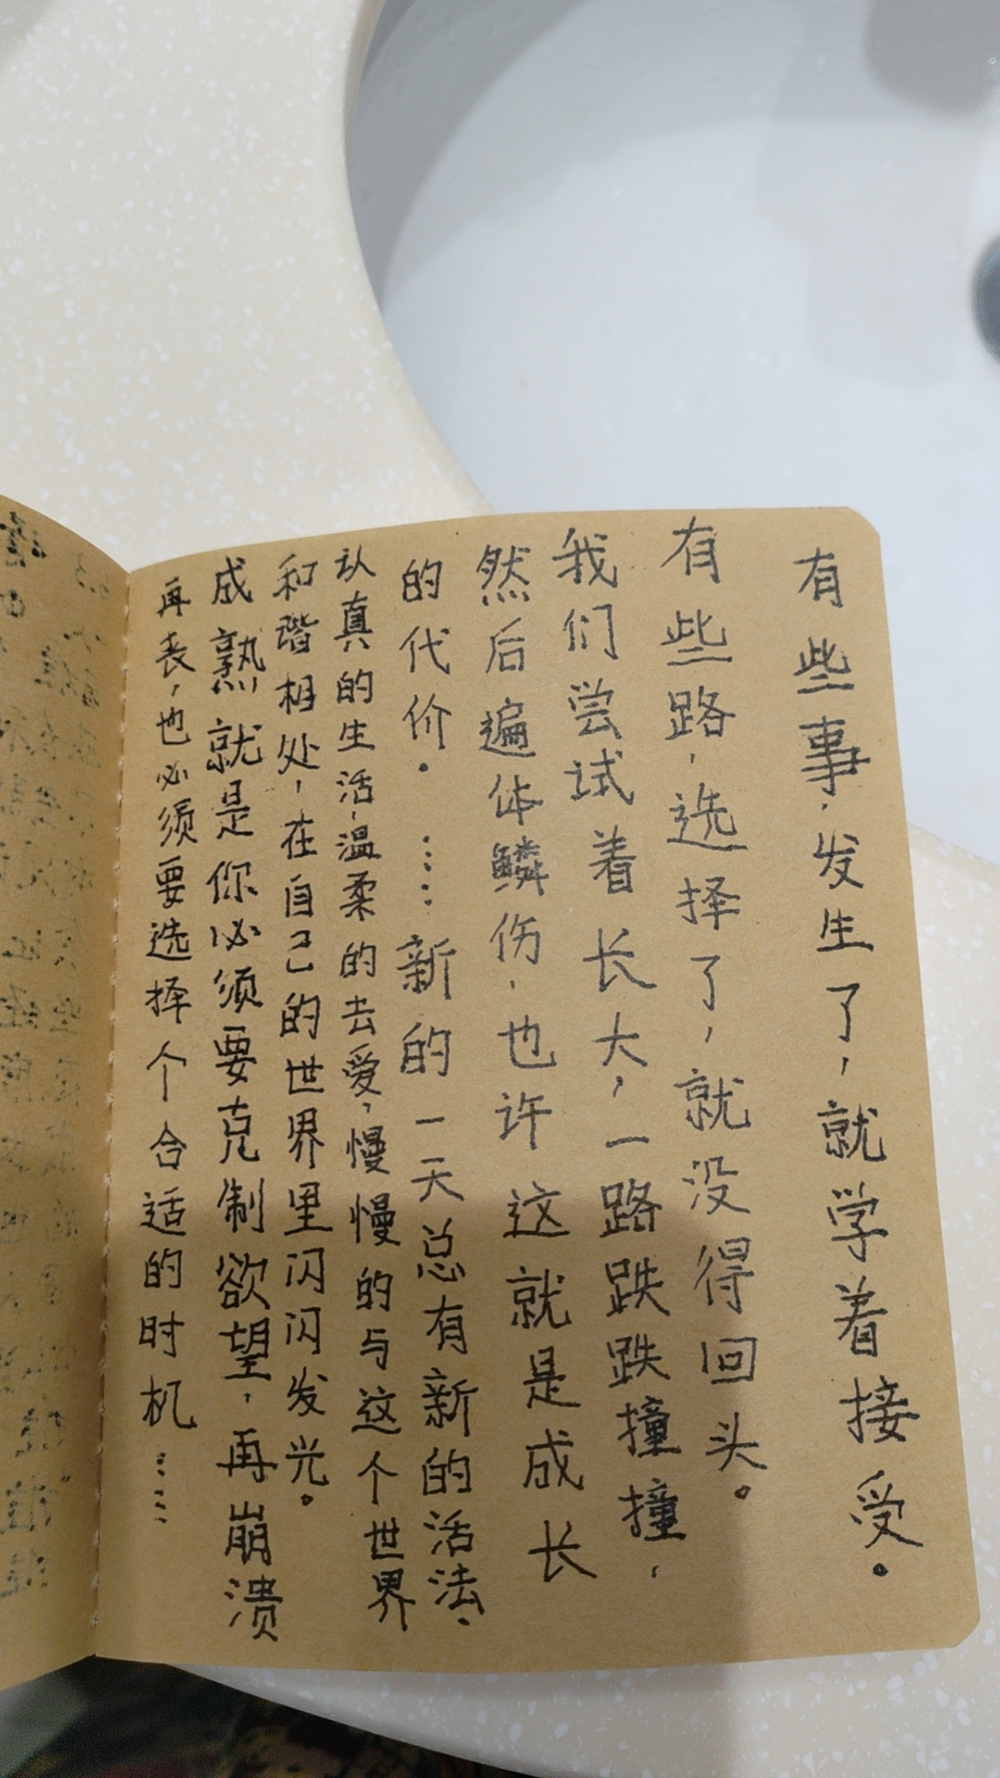 有些事,发生了,就学着接受。
有些路,选择了,就没得回头。
我们尝试着长大,一路跌跌撞撞,
然后遍体鳞伤,也许这就是成长
的代价。……新的一天总有新的活法、
认真的生活,温柔的去爱,慢慢的与这个世界
和谐相处,在自己的世界里闪闪发光。
成熟就是你必须要克制欲望,再崩溃
再丧,也必须要选择个合适的时机……